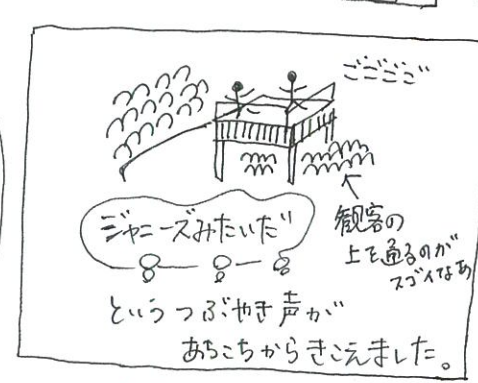 ごごごご
観客の
上を通るのが
スゴイなあ
ジャニーズみたいだ
というつぶやき声が
あちこちからきこえました。